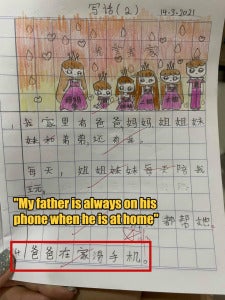 写话(2) 14-3-2021
我家里有爸爸妈妈姐姐妹
妹和弟弟,还有我。
每天,姐姐妹妹每天陪我
玩。
"My father is always on his
phone when he is at home"
都帮她。
4)爸爸在家滑手机。